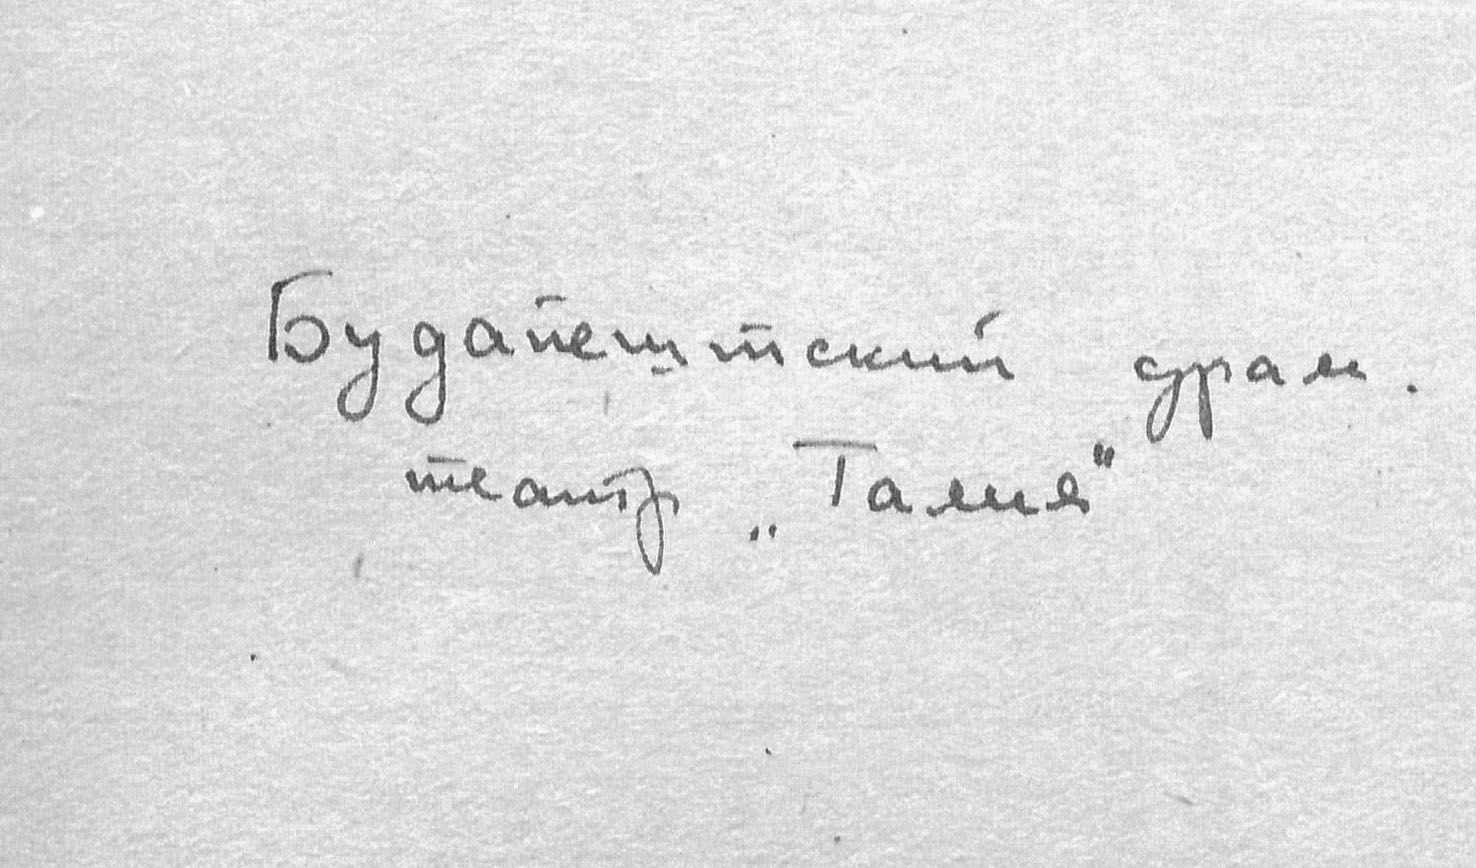 Будапештский драм.
театр „Талия"